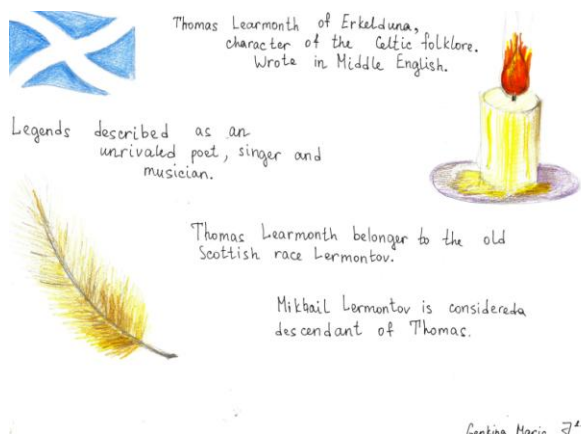 Thomas Learmonth of Erkelduna,
character of the Celtic folklore.
Wrote in Middle English.
Legends described as an
unrivaled poet, singer and
musician.
Thomas Learmonth belonger to the old
Scottish race Lermontov.
Mikhail Lermontov is considereda
descendant of Thomas.
Maria